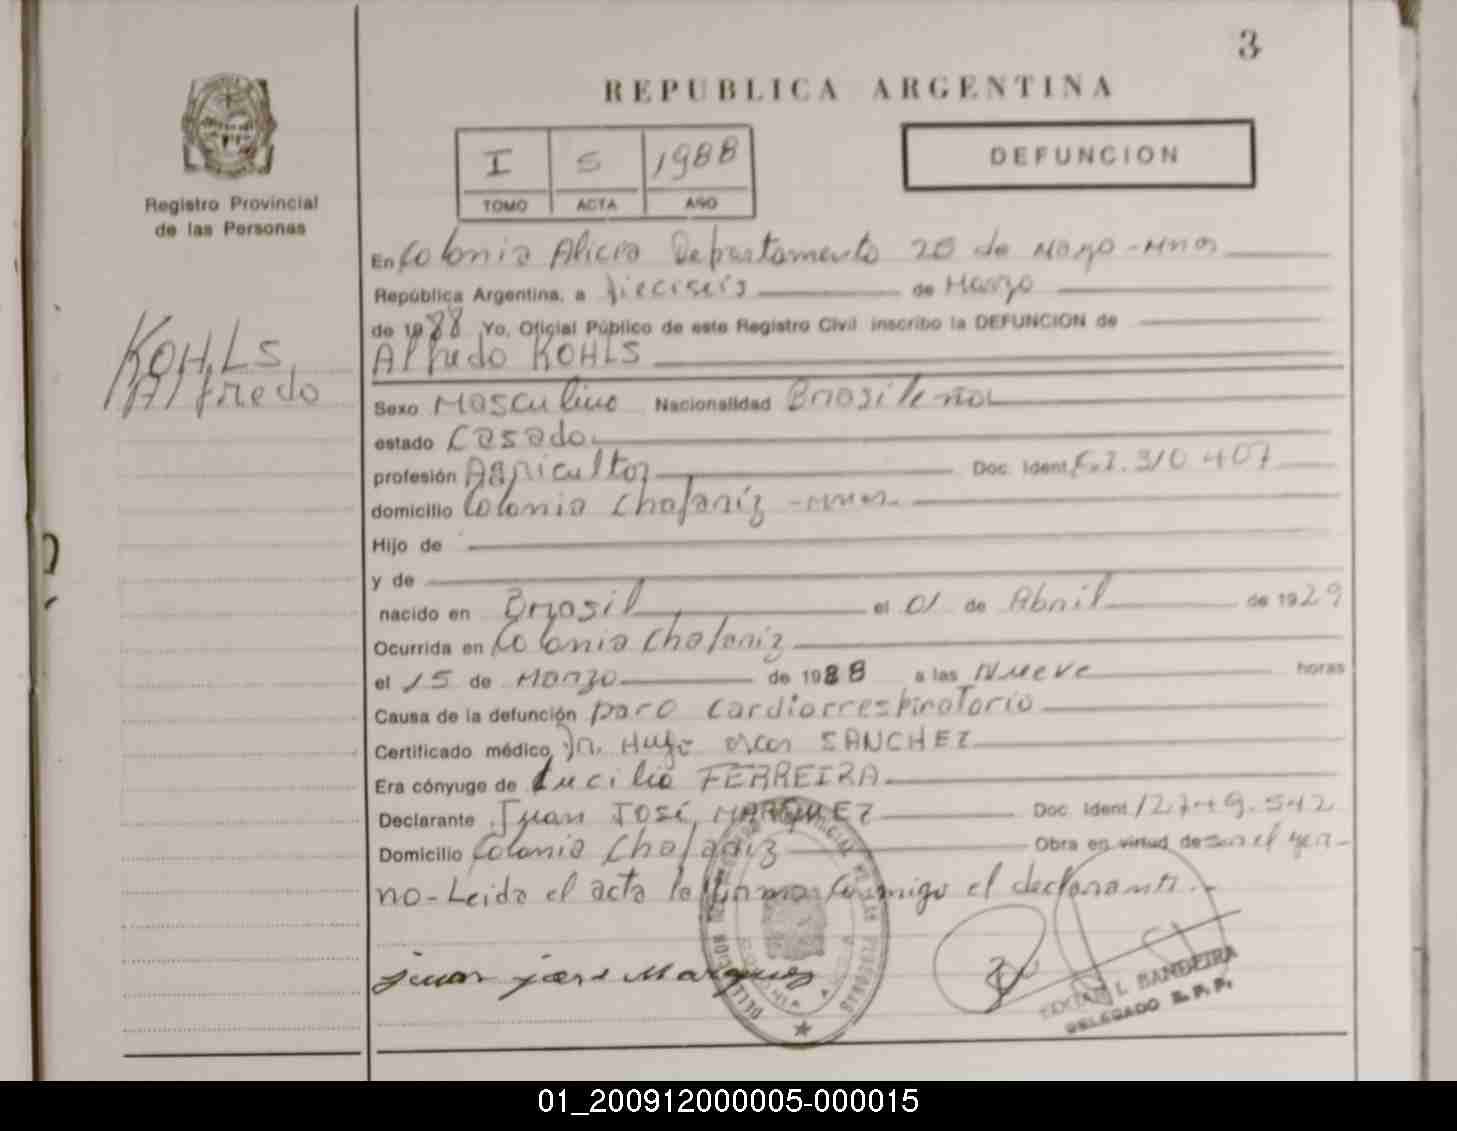 3
REPUBLICA ARGENTINA
Registro Provincial
de las Personas
I 5 1988
TOMO ACTA AÑO
DEFUNCION
KOHLS
Alfredo
En Colonia Alicia Departamento 25 de Mayo - Mnes
República Argentina, a dieciseis de Marzo
de 1988 Yo, Oficial Público de este Registro Civil inscribo la DEFUNCION de
Alfredo KOHLS
Sexo Masculino Nacionalidad Brasileña
estado Casado
profesión Agricultor Doc. Ident. 310 407
domicilio Colonia Chafariz - Mnes
Hijo de
y de
nacido en Brasil el 01 de Abril de 1929
Ocurrida en Colonia Chafariz
el 15 de Marzo de 1988 a las Nueve horas
Causa de la defunción paro cardiorrespiratorio
Certificado médico Dr. Hugo Oscar SANCHEZ
Era cónyuge de Lucilia FERREIRA
Declarante Juan José MARQUEZ Doc. Ident. 12.749.542
Domicilio Colonia Chafariz Obra en virtud de ser el yer-
no - Leida el acta la firma conmigo el declarante.-
juan jose Marquez
L. BANDEIRA
DELEGADO R. P. P.
01_200912000005-000015